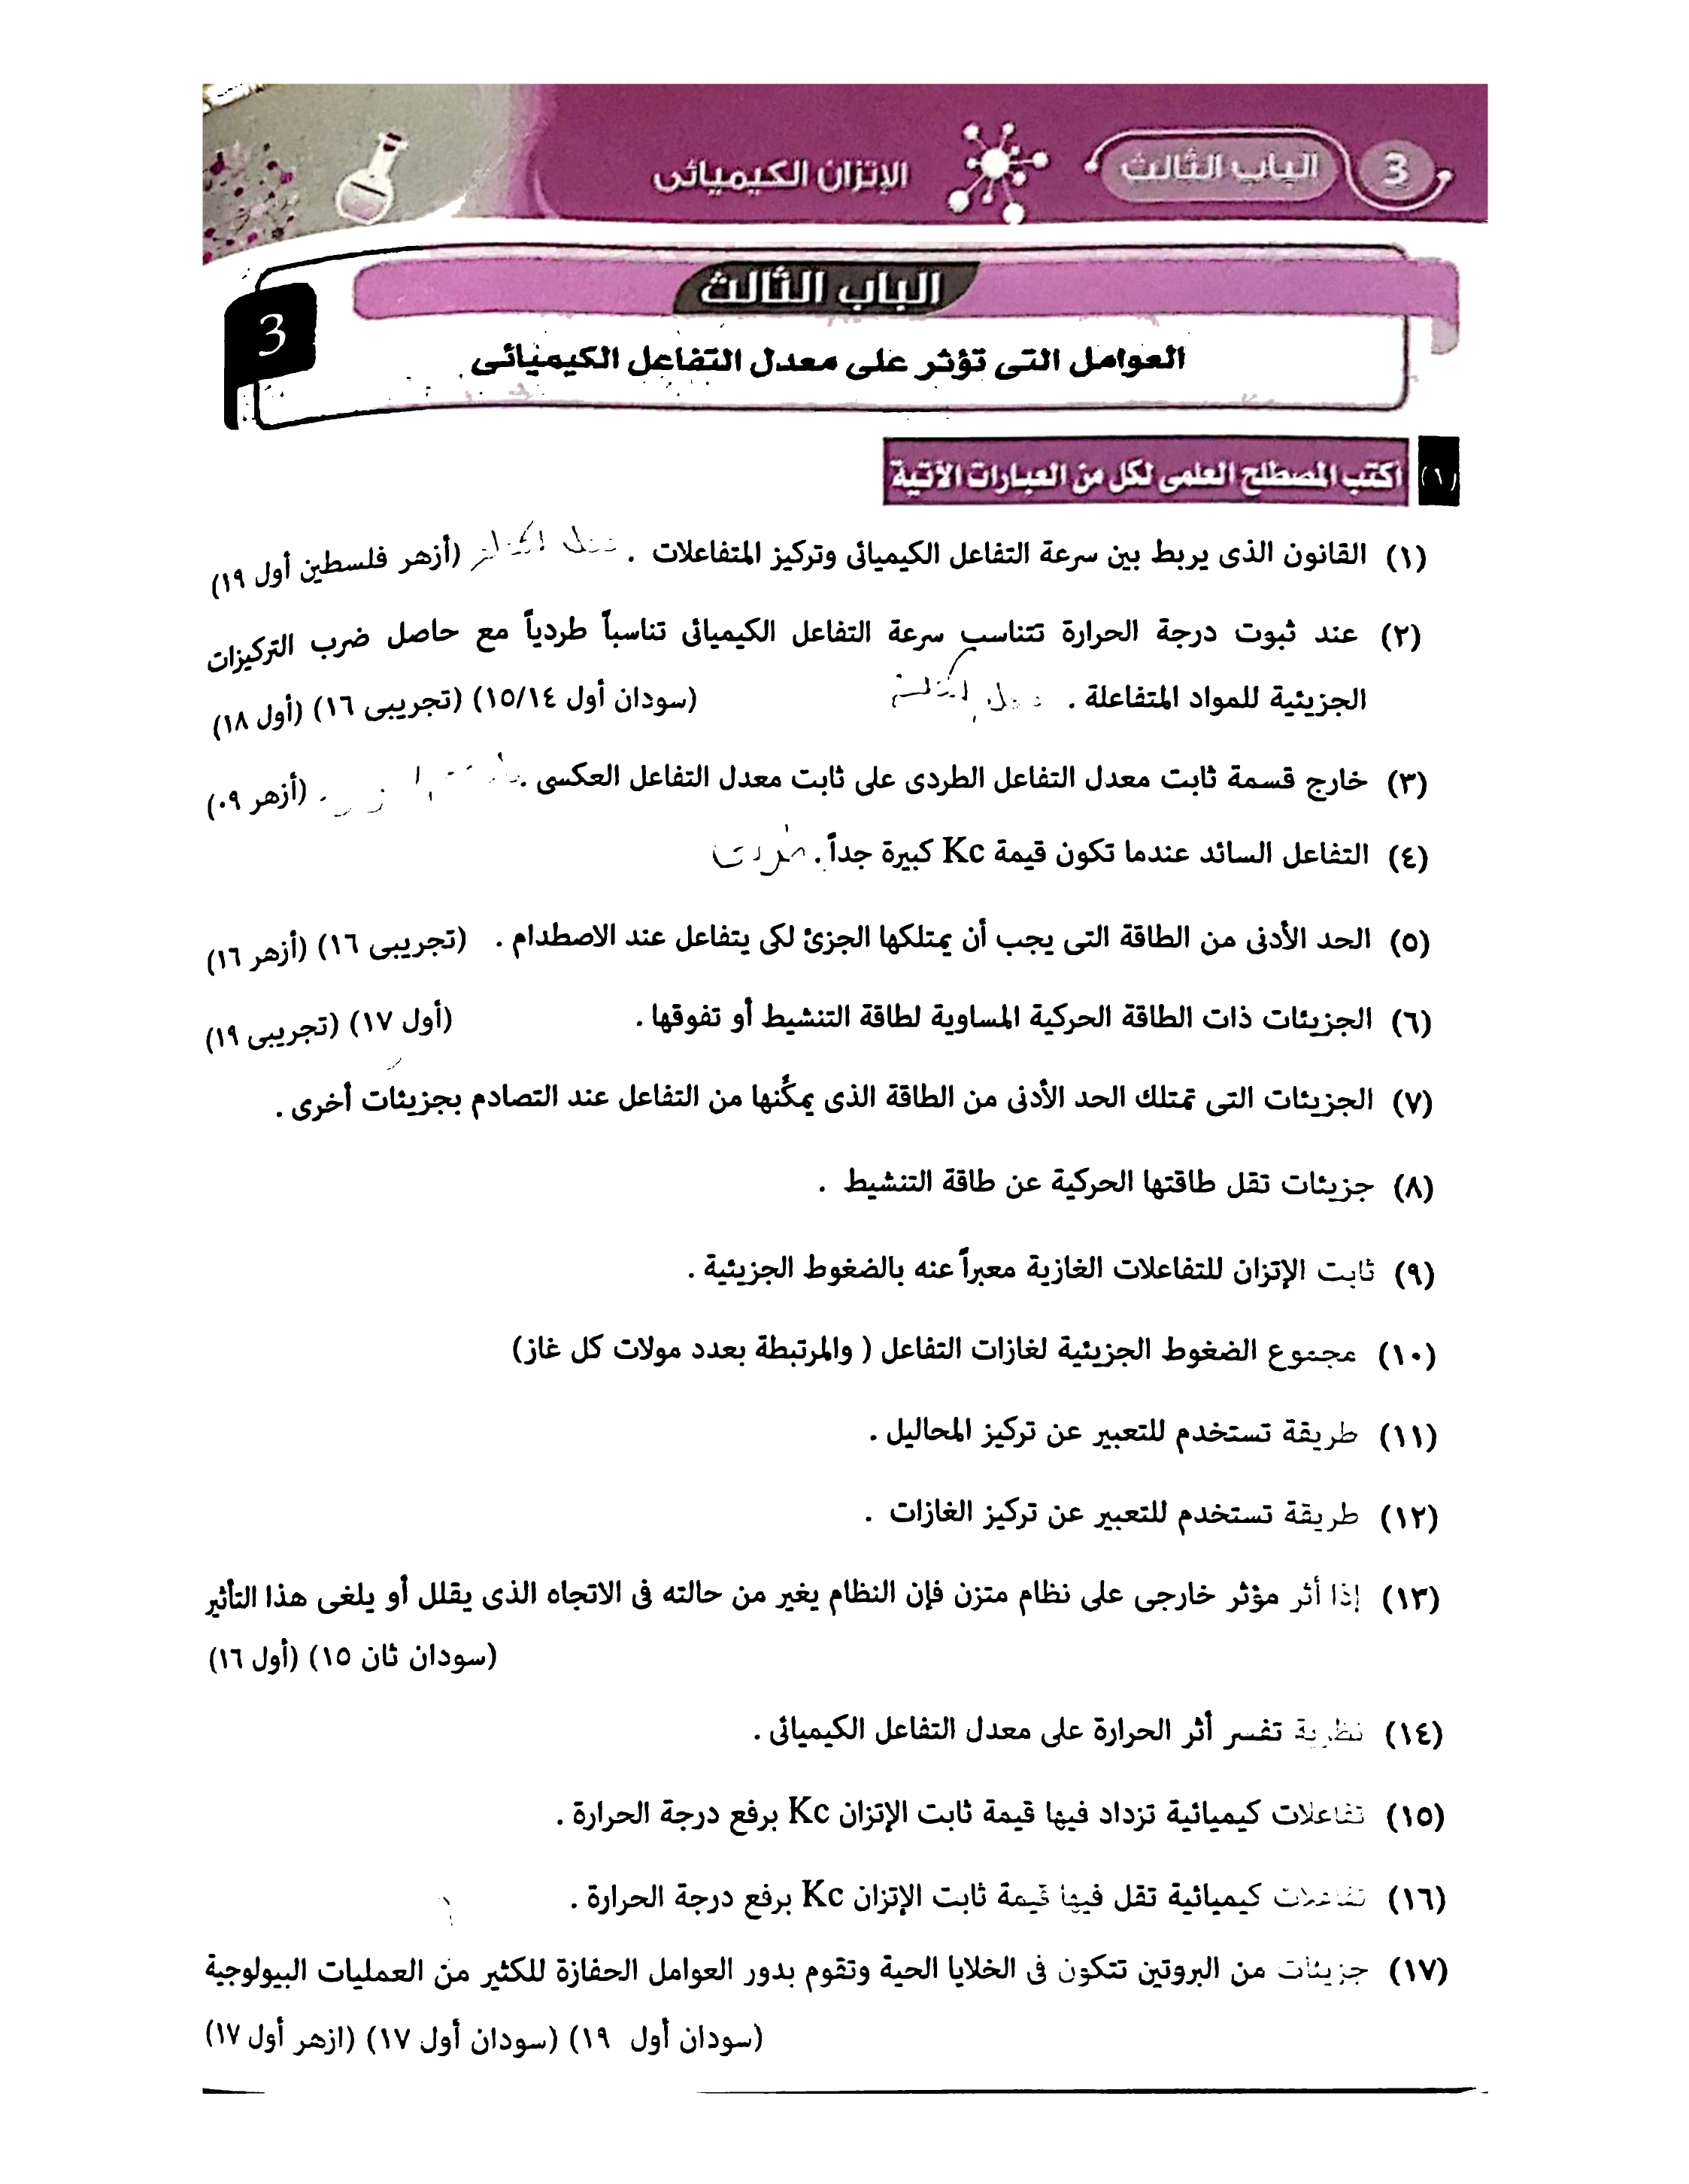 3 الباب الثالث
الإتزان الكيميائى
الباب الثالث
3
العوامل التى تؤثر على معدل التفاعل الكيميائى
(١) اكتب المصطلح العلمى لكل من العبارات الآتية
(١) القانون الذى يربط بين سرعة التفاعل الكيميائى وتركيز المتفاعلات . (أزهر فلسطين أول ١٩)
(٢) عند ثبوت درجة الحرارة تتناسب سرعة التفاعل الكيميائى تناسباً طردياً مع حاصل ضرب التركيزات
الجزيئية للمواد المتفاعلة . (سودان أول ١٥/١٤) (تجريبى ١٦) (أول ١٨)
(٣) خارج قسمة ثابت معدل التفاعل الطردى على ثابت معدل التفاعل العكسى . (أزهر ٠٩)
(٤) التفاعل السائد عندما تكون قيمة Kc كبيرة جداً .
(٥) الحد الأدنى من الطاقة التى يجب أن يمتلكها الجزئ لكى يتفاعل عند الاصطدام . (تجريبى ١٦) (أزهر ١٦)
(٦) الجزيئات ذات الطاقة الحركية المساوية لطاقة التنشيط أو تفوقها . (أول ١٧) (تجريبى ١٩)
(٧) الجزيئات التى تمتلك الحد الأدنى من الطاقة الذى يمكُنها من التفاعل عند التصادم بجزيئات أخرى .
(٨) جزيئات تقل طاقتها الحركية عن طاقة التنشيط .
(٩) ثابت الإتزان للتفاعلات الغازية معبراً عنه بالضغوط الجزيئية .
(١٠) مجموع الضغوط الجزيئية لغازات التفاعل ( والمرتبطة بعدد مولات كل غاز)
(١١) طريقة تستخدم للتعبير عن تركيز المحاليل .
(١٢) طريقة تستخدم للتعبير عن تركيز الغازات .
(١٣) إذا أثر مؤثر خارجى على نظام متزن فإن النظام يغير من حالته فى الاتجاه الذى يقلل أو يلغى هذا التأثير
(سودان ثان ١٥) (أول ١٦)
(١٤) نظرية تفسر أثر الحرارة على معدل التفاعل الكيميائى .
(١٥) تفاعلات كيميائية تزداد فيها قيمة ثابت الإتزان Kc برفع درجة الحرارة .
(١٦) تفاعلات كيميائية تقل فيها قيمة ثابت الإتزان Kc برفع درجة الحرارة .
(١٧) جزيئات من البروتين تتكون فى الخلايا الحية وتقوم بدور العوامل الحفازة للكثير من العمليات البيولوجية
(سودان أول ١٩) (سودان أول ١٧) (ازهر أول ١٧)